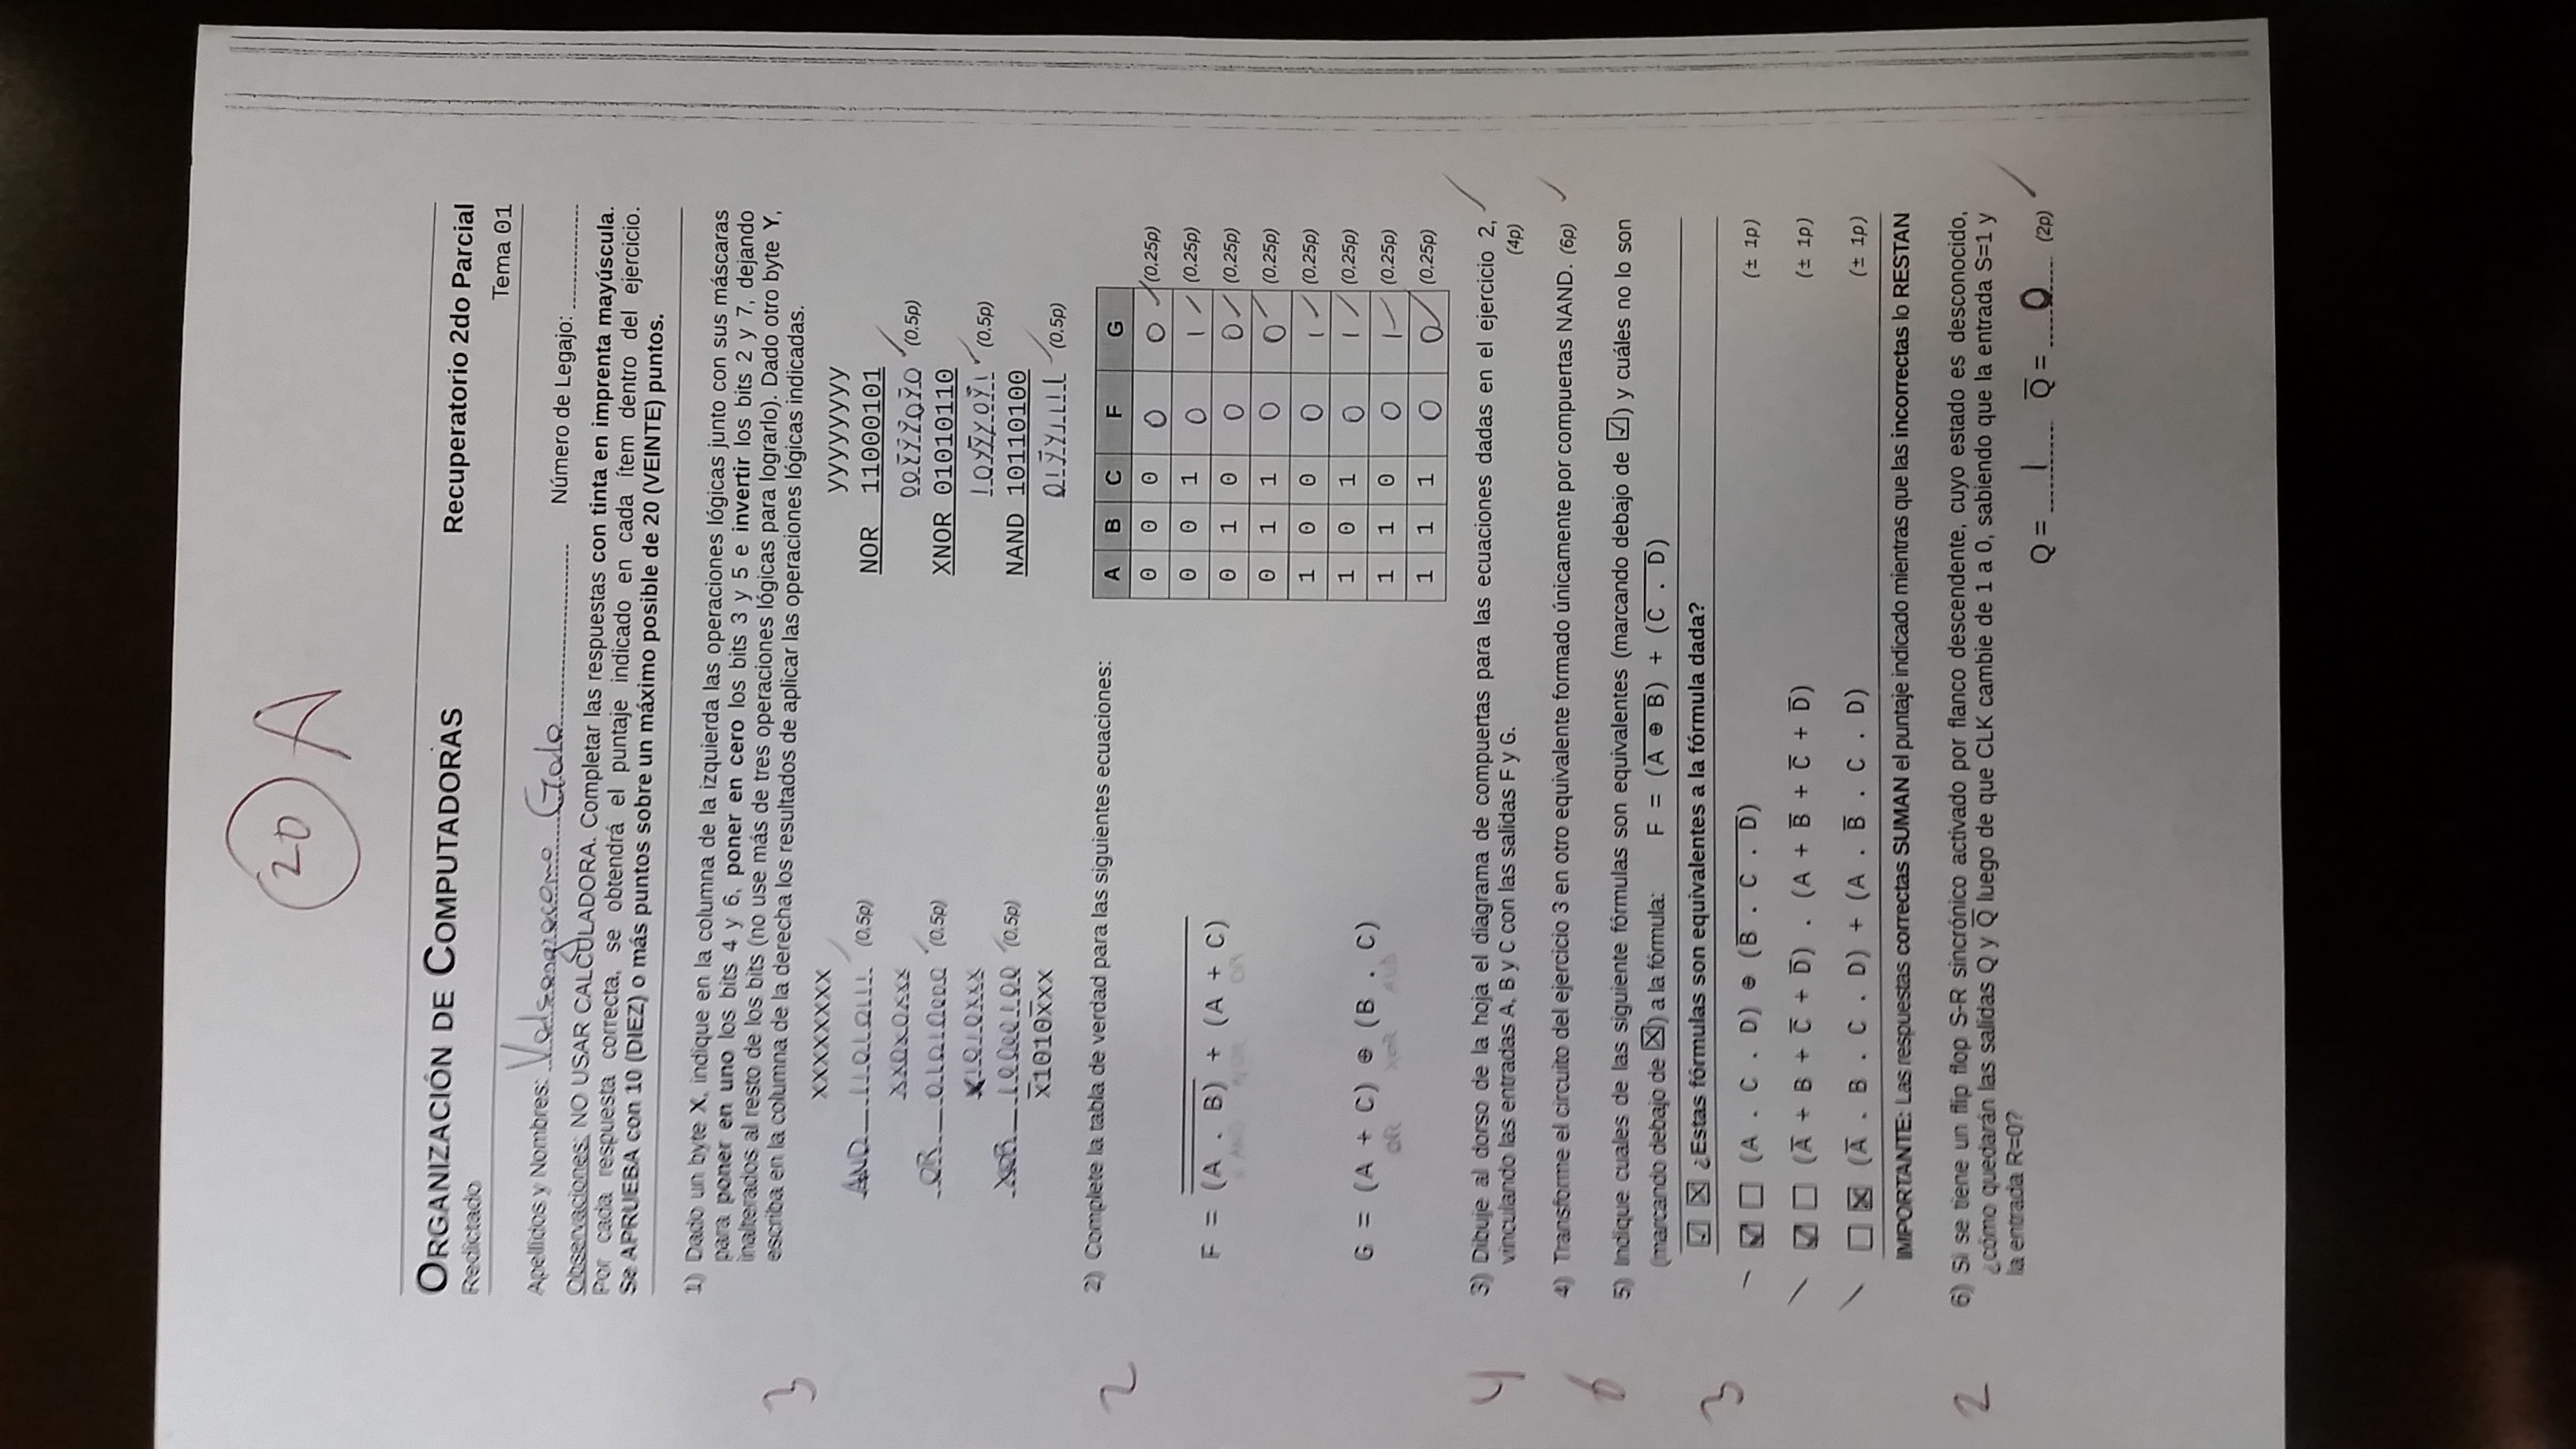 20 A
ORGANIZACIÓN DE COMPUTADORAS
Recuperatorio 2do Parcial
Redictado
Tema 01
Apellidos y Nombres: Valsangiacomo Galo
Número de Legajo:
Observaciones: NO USAR CALCULADORA. Completar las respuestas con tinta en imprenta mayúscula.
Por cada respuesta correcta, se obtendrá el puntaje indicado en cada ítem dentro del ejercicio.
Se APRUEBA con 10 (DIEZ) o más puntos sobre un máximo posible de 20 (VEINTE) puntos.
1) Dado un byte X, indique en la columna de la izquierda las operaciones lógicas junto con sus máscaras
para poner en uno los bits 4 y 6, poner en cero los bits 3 y 5 e invertir los bits 2 y 7, dejando
inalterados al resto de los bits (no use más de tres operaciones lógicas para lograrlo). Dado otro byte Y,
3
escriba en la columna de la derecha los resultados de aplicar las operaciones lógicas indicadas.
XXXXXXXX
AND 11010111 (0,5p)
XX0X0XXX
OR 01010000 (0,5p)
X1010XXX
XOR 10000100 (0,5p)
X̅1010X̅XX
yyyyyyyy
NOR 11000101
00Y̅Y̅Y̅0Y̅0 (0,5p)
XNOR 01010110
10YY̅Y0Y̅1 (0,5p)
NAND 10110100
01Y̅Y1111 (0,5p)
2
2) Complete la tabla de verdad para las siguientes ecuaciones:
F = (A . B) + (A + C)
AND NOR OR
G = (A + C) ⊕ (B . C)
OR XOR AND
A B C F G
0 0 0 0 0 (0,25p)
0 0 1 0 1 (0,25p)
0 1 0 0 0 (0,25p)
0 1 1 0 0 (0,25p)
1 0 0 0 1 (0,25p)
1 0 1 0 1 (0,25p)
1 1 0 0 1 (0,25p)
1 1 1 0 0 (0,25p)
4
3) Dibuje al dorso de la hoja el diagrama de compuertas para las ecuaciones dadas en el ejercicio 2,
vinculando las entradas A, B y C con las salidas F y G. (4p)
4) Transforme el circuito del ejercicio 3 en otro equivalente formado únicamente por compuertas NAND. (6p)
6
5) Indique cuales de las siguiente fórmulas son equivalentes (marcando debajo de ☑) y cuáles no lo son
(marcando debajo de ☒) a la fórmula: F = (A̅ ⊕̅ B̅) + (C̅ .̅ D̅)
☑ ☒ ¿Estas fórmulas son equivalentes a la fórmula dada?
3
☑ ☐ (A . C . D) ⊕ (B̅ .̅ C̅ .̅ D̅) (± 1p)
☑ ☐ (A̅ + B + C̅ + D̅) . (A + B̅ + C̅ + D̅) (± 1p)
☐ ☒ (A̅ . B . C . D) + (A . B̅ . C . D) (± 1p)
IMPORTANTE: Las respuestas correctas SUMAN el puntaje indicado mientras que las incorrectas lo RESTAN
2
6) Si se tiene un flip flop S-R sincrónico activado por flanco descendente, cuyo estado es desconocido,
¿cómo quedarán las salidas Q y Q̅ luego de que CLK cambie de 1 a 0, sabiendo que la entrada S=1 y
la entrada R=0?
Q = 1 Q̅ = 0 (2p)